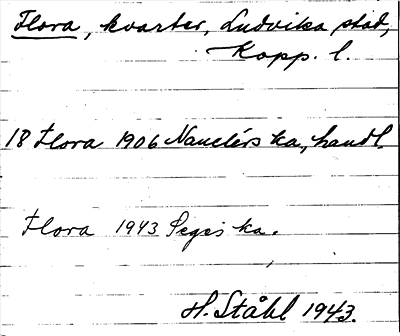 Flora, kvarter, Ludvika stad,
Kopp. l.
18 Flora 1906 Nauclérs ka, handl.
Flora 1943 Segis ka.
H. Ståhl 1943.